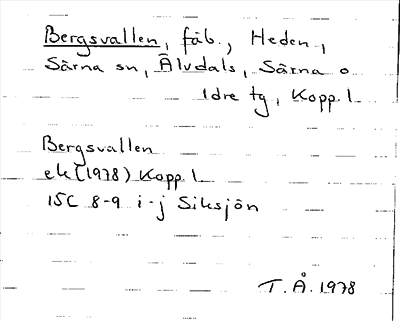 Bergsvallen, fäb., Heden,
Särna sn, Älvdals, Särna o
Idre tg, Kopp. l
Bergsvallen
ek (1978) Kopp. l
15C 8-9 i-j Siksjön
T.Å. 1978